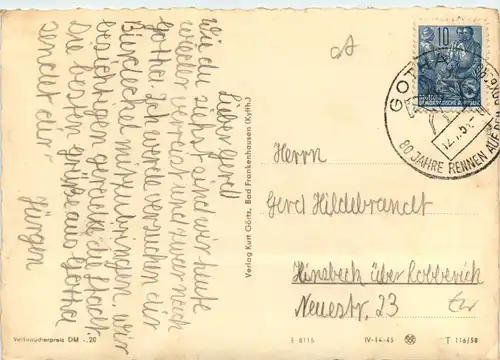 Lieber Gerd
Wie du siehst sind wir heute
wieder verreist und zwar nach
Gotha. Ich werde versuchen dir
Bierdeckel mitzubringen. Wir
besichtigen gerade die Stadt.
Die besten Grüße aus Gotha
sendet dir –
Jürgen
Verbraucherpreis DM -.20
Verlag Kurt Görtz, Bad Frankenhausen (Kyffh.)
10
DEUTSCHE
DEMOKRATISCHE REPUBLIK
GOTHA
80 JAHRE RENNEN AUF DEM
Herrn
Gerd Hildebrandt
Hinsbeck über Lobberich
Neuestr. 23
E 8116
IV-14-45
T 116/58